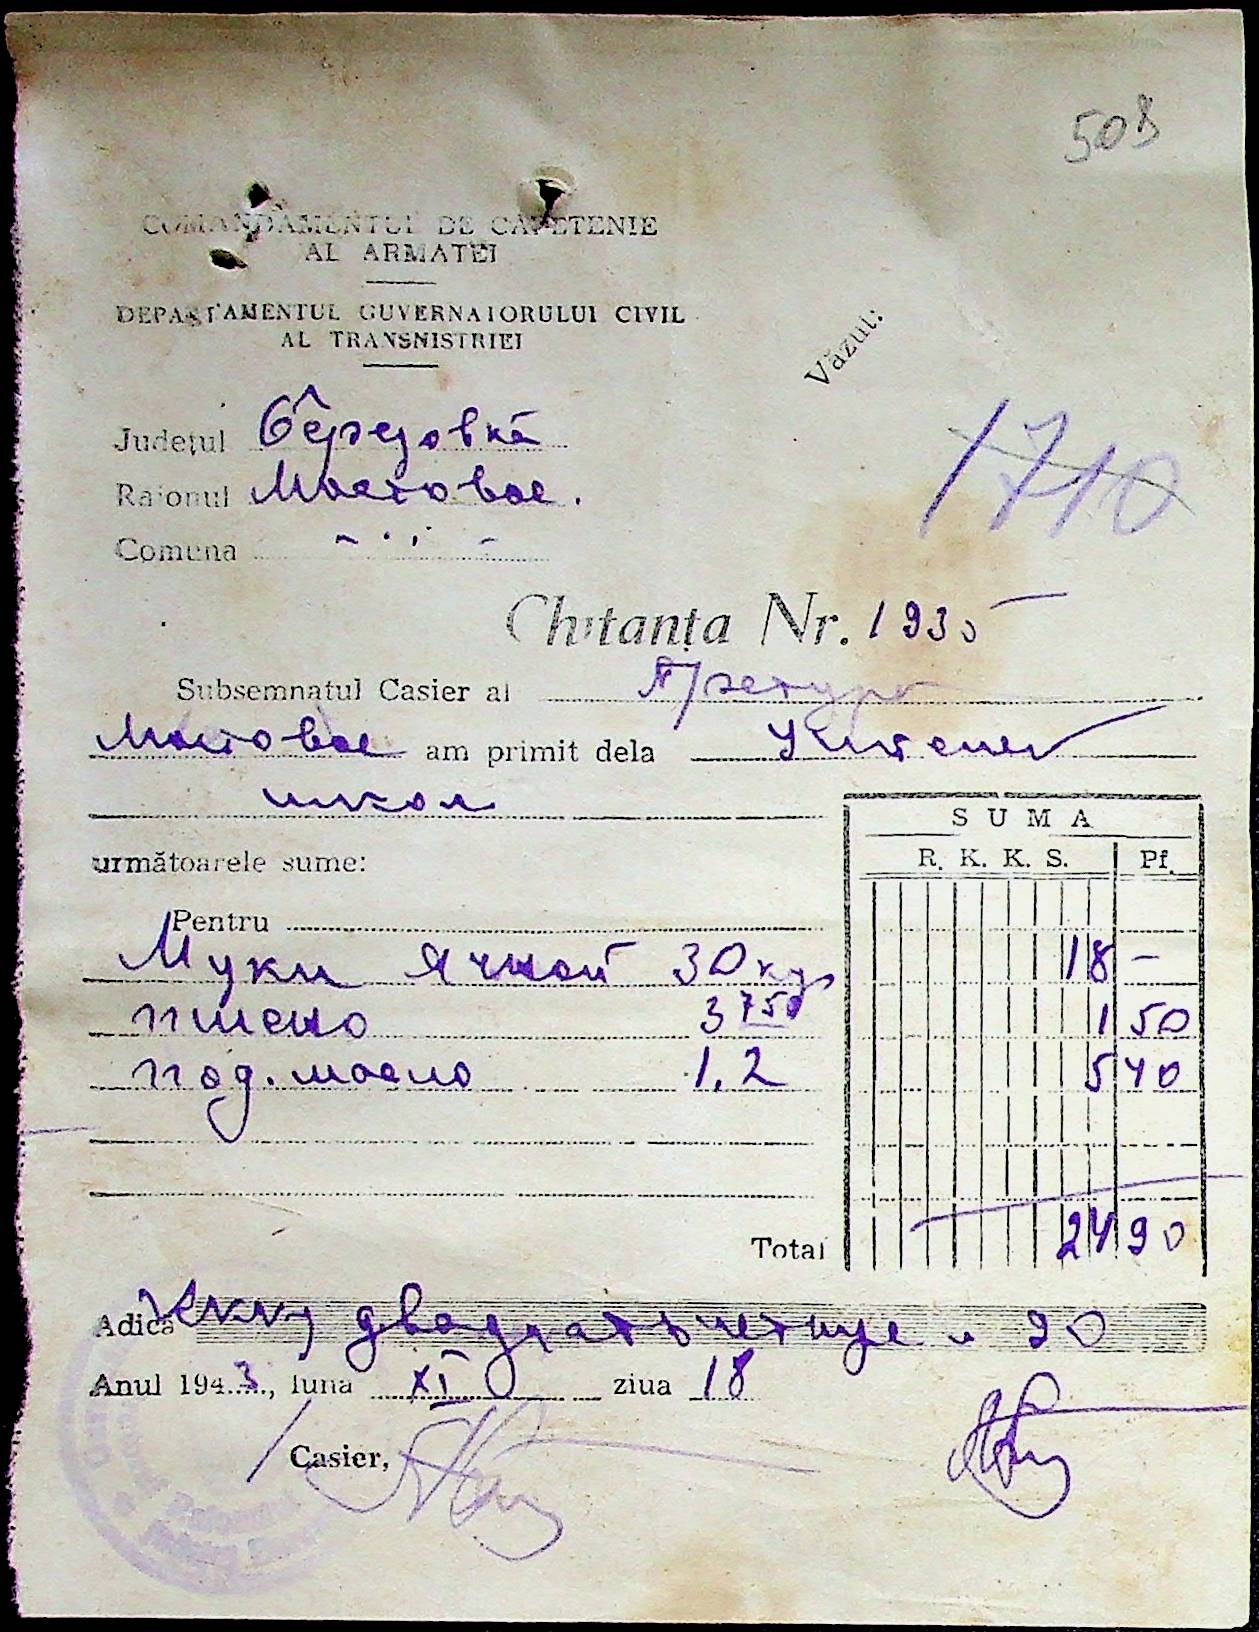 508
COMANDAMENTUL DE CAPETENIE
AL ARMATEI
DEPARTAMENTUL GUVERNATORULUI CIVIL
AL TRANSNISTRIEI
Văzut:
Județul Березовка
Raionul Мостовое.
1710
Comuna
Chitanța Nr. 1935
Subsemnatul Casier al Претура
Мостовое am primit dela Учителей
школ
SUMA
următoarele sume: R. K. K. S. Pf.
Pentru
Муки ячной 30 кгр 18 –
пшено 3 750 1 50
под. масло 1,2 5 40
Total 24 90
Adică двадцать четыре и 90
Anul 1943, luna XI ziua 18
Casier,